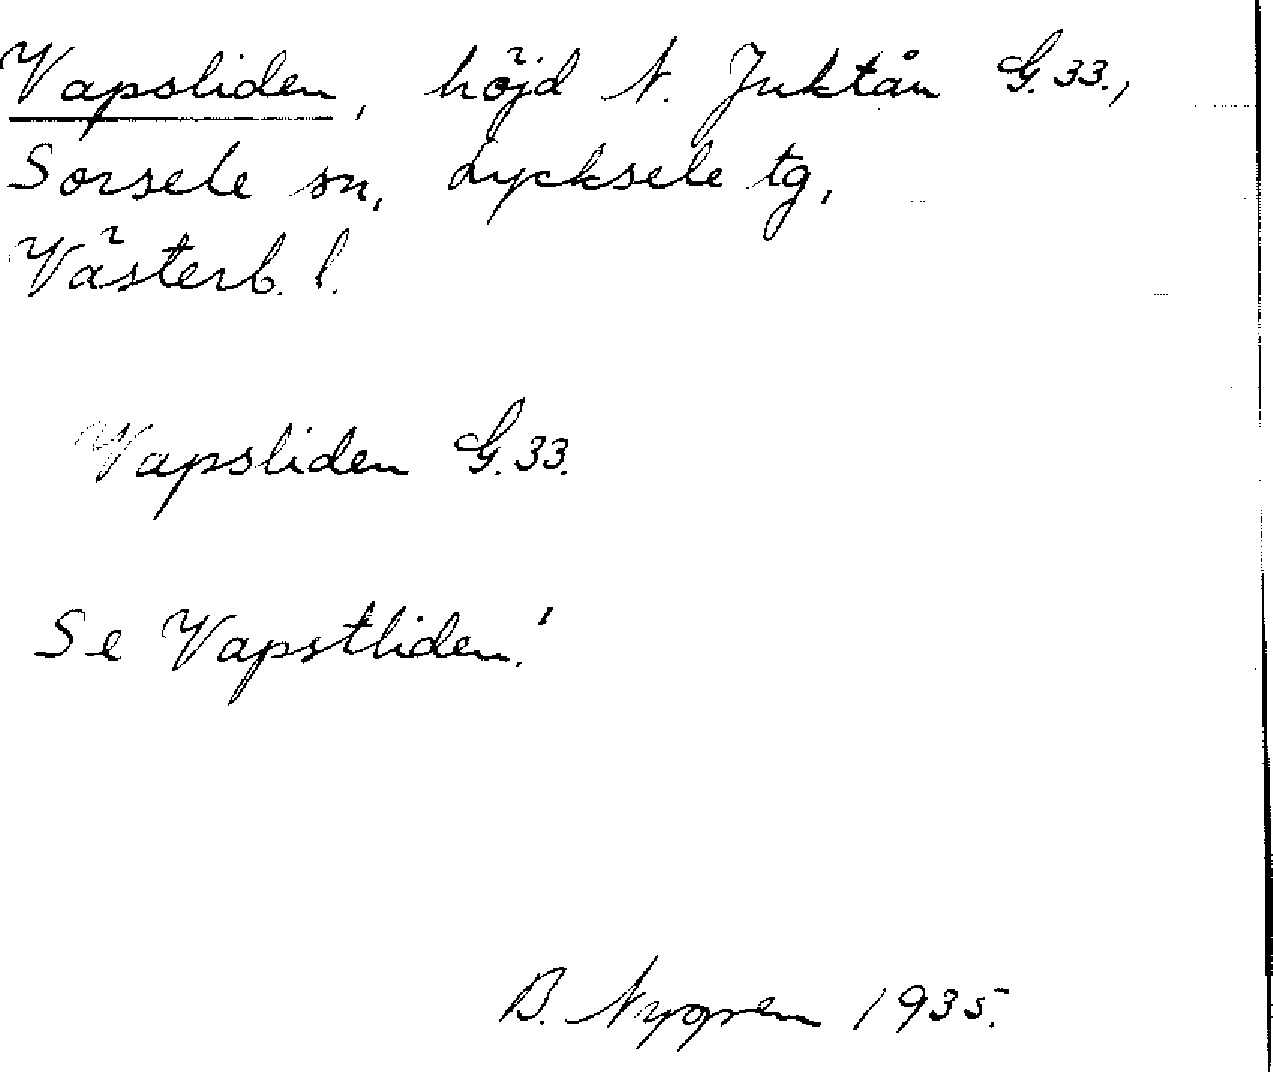 Vapsliden, höjd N. Juktån G. 33.,
Sorsele sn, Lycksele tg,
Västerb. l.
Vapsliden G. 33.
Se Vapstliden!
B. Nygren 1935.